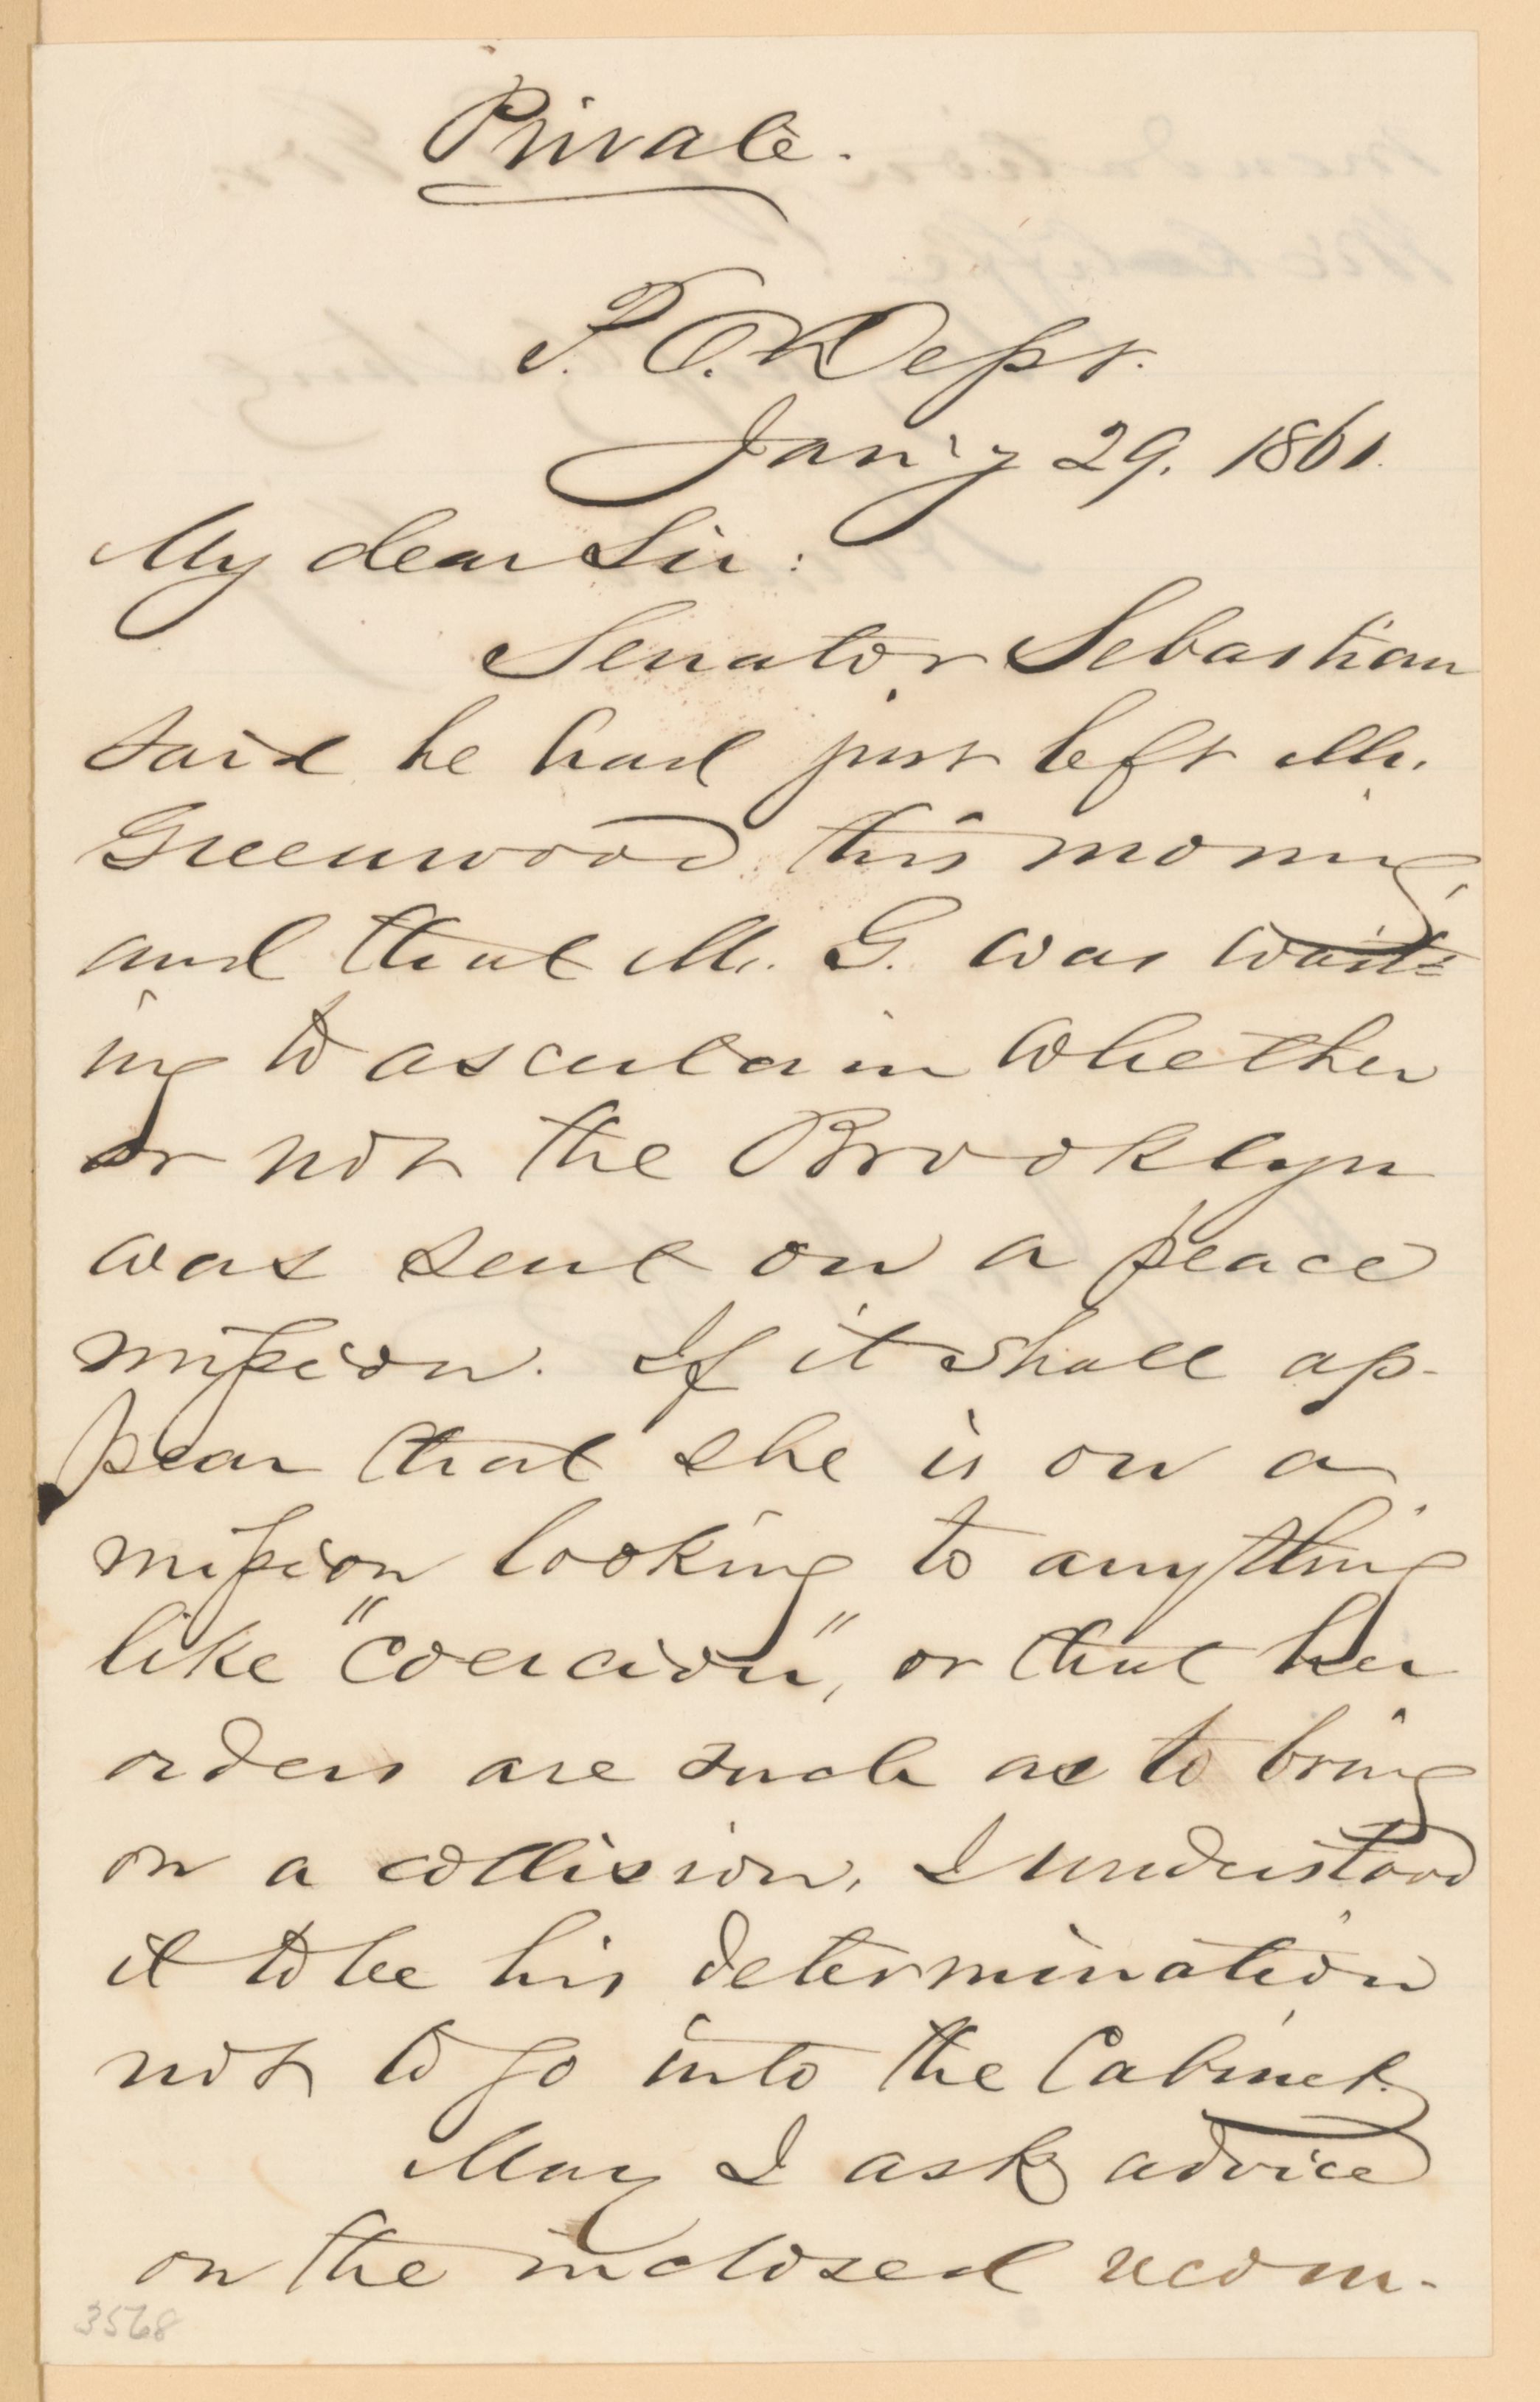 Private.
P. O. Dept.
Jan'y 29, 1861.
My dear Sir:
Senator Sebastian
said he had just left Mr.
Greenwood this morning,
and that Mr. G. was wait=
ing to ascertain whether
or not the Brooklyn
was sent on a peace
mission. If it shall ap-
pear that she is on a
mission looking to anything
like "coercion", or that her
orders are such as to bring
on a collision, I understood
it to be his determination
not to go into the Cabinet.
May I ask advice
on the inclosed recom-
3568